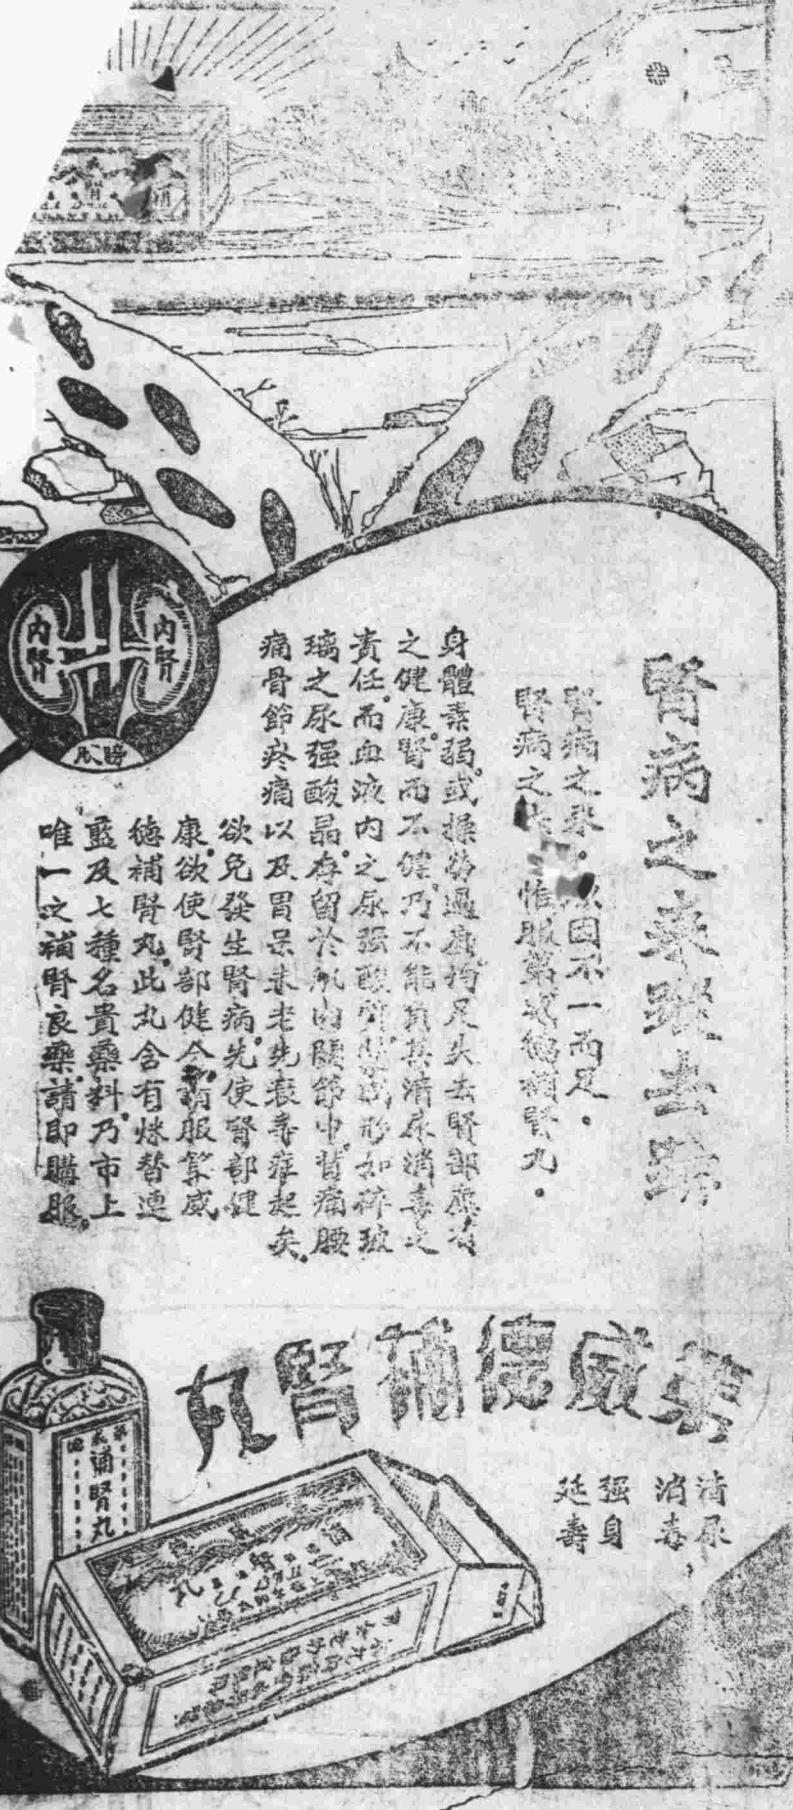 腎病之來蹤去跡
腎病之來。原因不一而足。
腎病之去 惟服第威德補腎丸。
身體素弱。或操勞過度。均足失去腎部應有
之健康。腎而不健。乃不能負其清尿消毒之
責任。而血液內之尿强酸 形如碎玻
璃之尿强酸晶。存留於肌肉關節中。背痛腰
痛骨節疼痛以及胃呆未老先衰等症起矣。
欲免發生腎病。先使腎部健
康。欲使腎部健全。請服第威
德補腎丸。此丸含有
藍及七種名貴藥料。乃市上
唯一之補腎良藥。請即購服。
內腎
內腎
膀胱
第威德補腎丸
清尿
消毒
强身
延壽
補腎丸